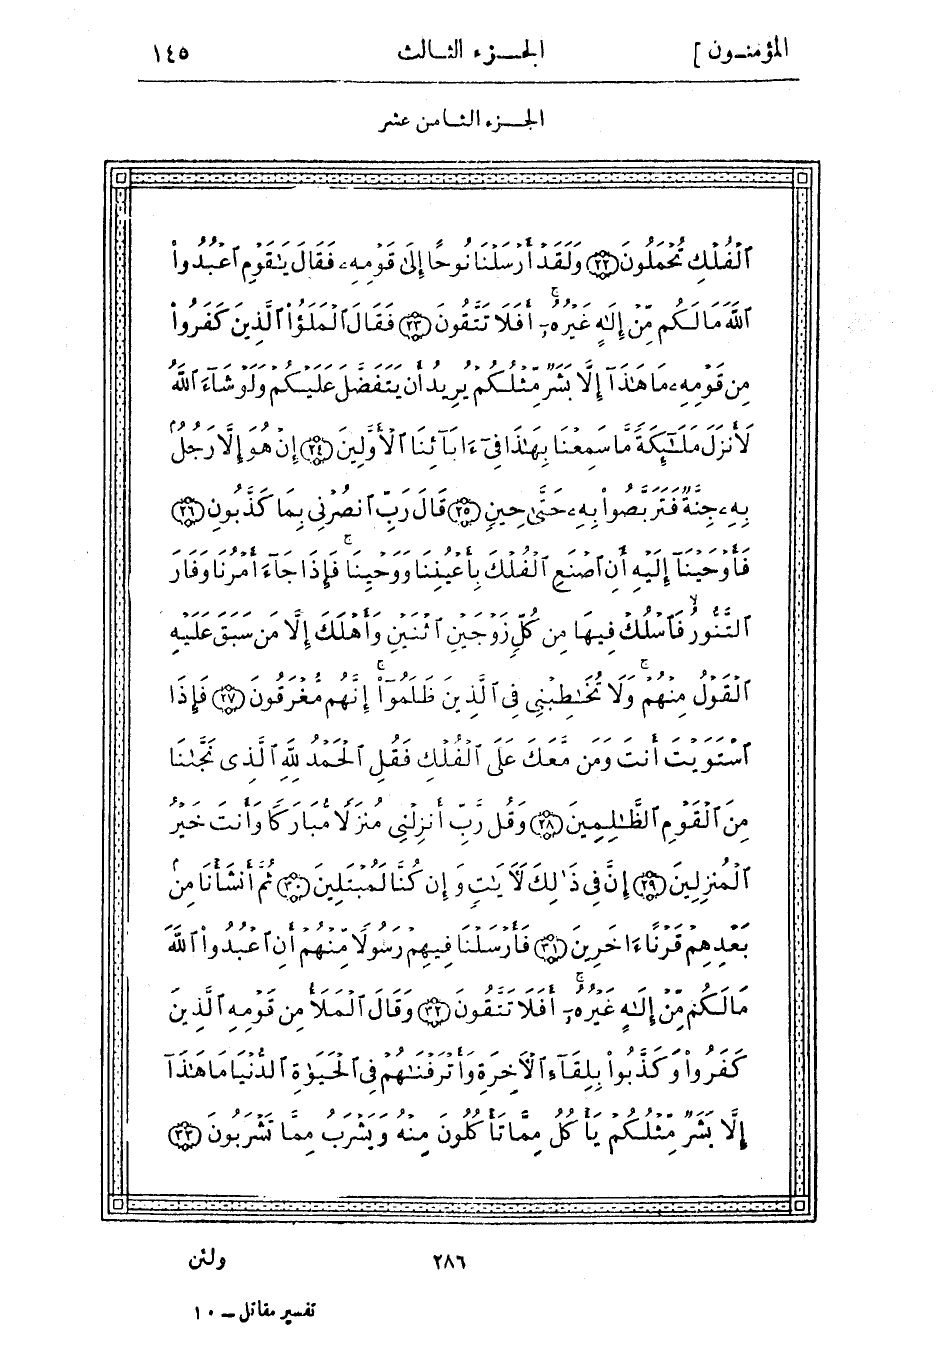 المؤمنـون ]
الجـزء الثالث
١٤٥
الجـزء الثامن عشر
ٱلْفُلْكِ تُحْمَلُونَ ﴿٢٢﴾ وَلَقَدْ أَرْسَلْنَا نُوحًا إِلَىٰ قَوْمِهِۦ فَقَالَ يَٰقَوْمِ ٱعْبُدُوا۟
ٱللَّهَ مَا لَكُم مِّنْ إِلَٰهٍ غَيْرُهُۥٓ ۚ أَفَلَا تَتَّقُونَ ﴿٢٣﴾ فَقَالَ ٱلْمَلَؤُا۟ ٱلَّذِينَ كَفَرُوا۟
مِن قَوْمِهِۦ مَا هَٰذَآ إِلَّا بَشَرٌ مِّثْلُكُمْ يُرِيدُ أَن يَتَفَضَّلَ عَلَيْكُمْ وَلَوْ شَآءَ ٱللَّهُ
لَأَنزَلَ مَلَٰٓئِكَةً مَّا سَمِعْنَا بِهَٰذَا فِىٓ ءَابَآئِنَا ٱلْأَوَّلِينَ ﴿٢٤﴾ إِنْ هُوَ إِلَّا رَجُلٌۢ
بِهِۦ جِنَّةٌ فَتَرَبَّصُوا۟ بِهِۦ حَتَّىٰ حِينٍ ﴿٢٥﴾ قَالَ رَبِّ ٱنصُرْنِى بِمَا كَذَّبُونِ ﴿٢٦﴾
فَأَوْحَيْنَآ إِلَيْهِ أَنِ ٱصْنَعِ ٱلْفُلْكَ بِأَعْيُنِنَا وَوَحْيِنَا ۖ فَإِذَا جَآءَ أَمْرُنَا وَفَارَ
ٱلتَّنُّورُ ۙ فَٱسْلُكْ فِيهَا مِن كُلٍّ زَوْجَيْنِ ٱثْنَيْنِ وَأَهْلَكَ إِلَّا مَن سَبَقَ عَلَيْهِ
ٱلْقَوْلُ مِنْهُمْ ۖ وَلَا تُخَٰطِبْنِى فِى ٱلَّذِينَ ظَلَمُوٓا۟ ۖ إِنَّهُم مُّغْرَقُونَ ﴿٢٧﴾ فَإِذَا
ٱسْتَوَيْتَ أَنتَ وَمَن مَّعَكَ عَلَى ٱلْفُلْكِ فَقُلِ ٱلْحَمْدُ لِلَّهِ ٱلَّذِى نَجَّىٰنَا
مِنَ ٱلْقَوْمِ ٱلظَّٰلِمِينَ ﴿٢٨﴾ وَقُل رَّبِّ أَنزِلْنِى مُنزَلًا مُّبَارَكًا وَأَنتَ خَيْرُ
ٱلْمُنزِلِينَ ﴿٢٩﴾ إِنَّ فِى ذَٰلِكَ لَءَايَٰتٍ وَإِن كُنَّا لَمُبْتَلِينَ ﴿٣٠﴾ ثُمَّ أَنشَأْنَا مِنۢ
بَعْدِهِمْ قَرْنًا ءَاخَرِينَ ﴿٣١﴾ فَأَرْسَلْنَا فِيهِمْ رَسُولًا مِّنْهُمْ أَنِ ٱعْبُدُوا۟ ٱللَّهَ
مَا لَكُم مِّنْ إِلَٰهٍ غَيْرُهُۥٓ ۚ أَفَلَا تَتَّقُونَ ﴿٣٢﴾ وَقَالَ ٱلْمَلَأُ مِن قَوْمِهِ ٱلَّذِينَ
كَفَرُوا۟ وَكَذَّبُوا۟ بِلِقَآءِ ٱلْءَاخِرَةِ وَأَتْرَفْنَٰهُمْ فِى ٱلْحَيَوٰةِ ٱلدُّنْيَا مَا هَٰذَآ
إِلَّا بَشَرٌ مِّثْلُكُمْ يَأْكُلُ مِمَّا تَأْكُلُونَ مِنْهُ وَيَشْرَبُ مِمَّا تَشْرَبُونَ ﴿٣٣﴾
٢٨٦
ولئن
تفسير مقاتل ــ ١٠